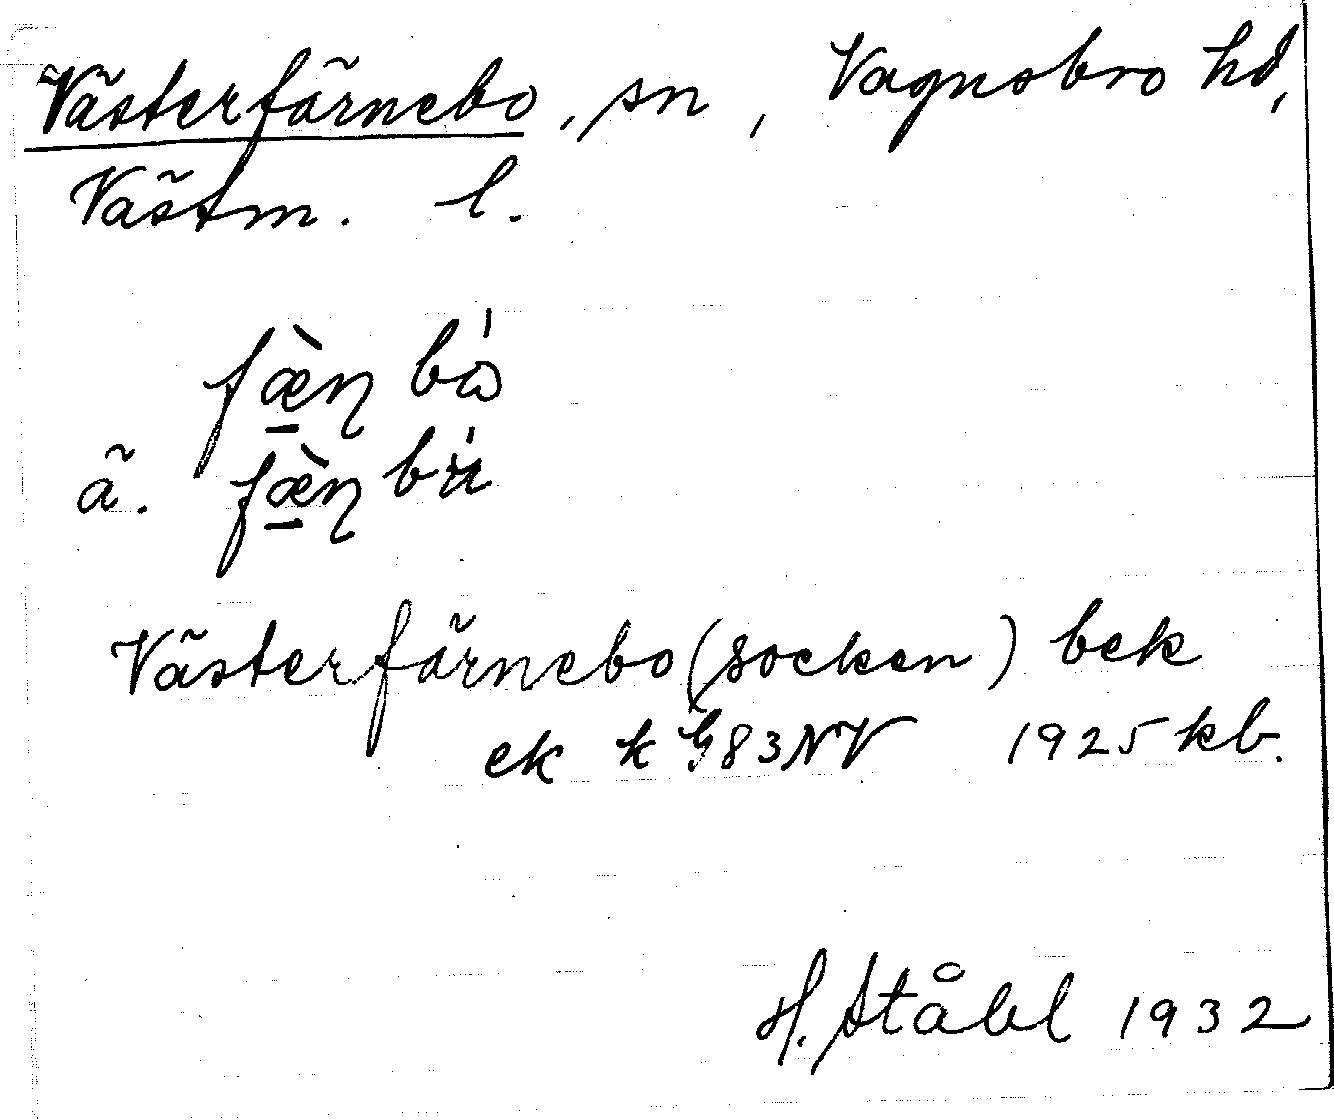 Västerfärnebo, sn, Vagnsbro hd,
Västm. l.
fæ̀ɳ bò
ä. fæ̀ɳ
Västerfärnebo (socken) bek
ek k G83NV 1925 kb.
H. Ståhl 1932